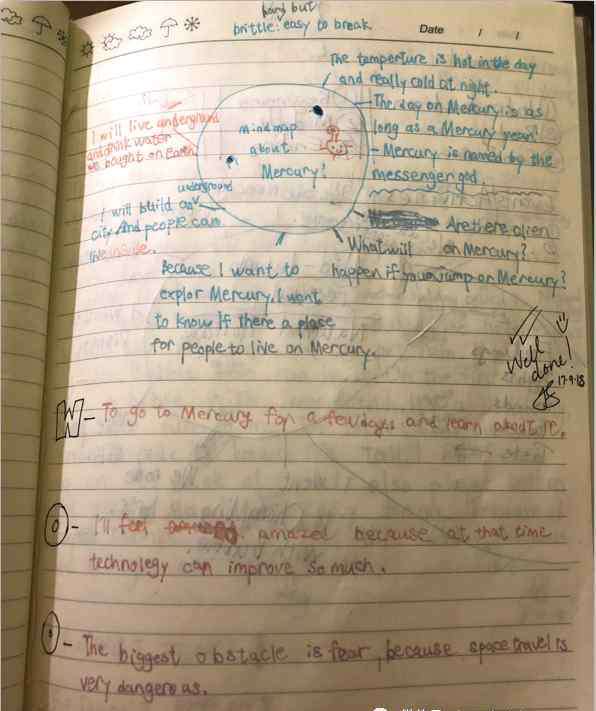 hard but
brittle: easy to break
Date / /
The temperture is hot in the day
and really cold at night.
The day on Mercury is as
long as a Mercury year
- Mercury is named by the
messenger god.
I will live underground
and drink water
we bought on Earth.
mind map
about
Mercury!
underground
I will build a
city. And people can
live inside.
Are there alien
on Mercury?
What will
happen if you jump on Mercury?
Because I want to
explor Mercury. I want
to know if there a place
for people to live on Mercury.
Well
done!
17-9-18
W - To go to Mercury for a few days and learn about it.
O - I'll feel amazed because at that time
technology can improve so much.
O - The biggest obstacle is fear, because space travel is
very dangerous.